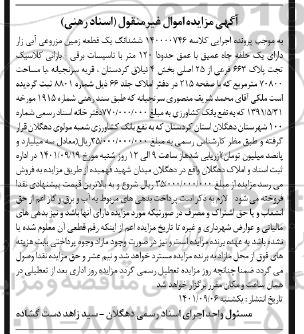 آگهی مزایده اموال غیرمنقول (اسناد رهنی)
به موجب پرونده اجرایی کلاسه ۱۴۰۰۰۰۷۴۶ ششدانگ یک قطعه زمین مزروعی آبی زار
دارای یک حلقه چاه عمیق با عمق حدودا ۱۲۰ متر با تاسیسات برقی - بارانی کلاسیک
تحت پلاک ۶۶۳ فرعی از ۲۵ اصلی بخش ۴ ییلاق کردستان، قریه سرنجیانه با مساحت
۷۰۸۰۰ مترمربع که با صفحه ۲۱۵ در دفتر املاک جلد ۶۶ ذیل شماره ۸۸۰۱ ثبت گردیده
است ملکی آقای محمد شریف منصوری سرنجیانه که طبق سند رهنی شماره ۱۹۱۵ مورخه
۱۳۹۱/۵/۳۱ که به نفع بانک کشاورزی به مبلغ ۷۷۰/۰۰۰/۰۰۰ دفترخانه اسناد رسمی شماره
۱۰۰ شهرستان دهگلان استان کردستان که به نفع بانک کشاورزی شعبه مولوی دهگلان قرار
گرفته و طبق نظر کارشناس رسمی به مبلغ ۳۵/۰۰۰/۰۰۰/۰۰۰ ریال(معادل سه میلیارد و
پانصد میلیون تومان) ارزیابی شده از ساعت ۹ الی ۱۲ روز شنبه مورخ ۱۴۰۱/۰۹/۱۹ در اداره
ثبت اسناد و املاک دهگلان واقع در دهگلان میدان شهید فهمیده از طریق مزایده به فروش
می رسد مزایده از مبلغ ۳۵/۰۰۰/۰۰۰/۰۰۰ ریال شروع و به بالاترین قیمت پیشنهادی نقدا
فروخته می شود لازم به ذکر است پرداخت بدهی های مربوط به آب و برق و گاز اعم از حق
انشعاب و یا حق اشتراک و مصرف در صورتیکه مورد مزایده دارای آنها باشد و نیز بدهی های
مالیاتی و عوارض شهرداری و غیره تا تاریخ مزایده اعم از اینکه رقم قطعی آن معلوم شده یا
نشده باشد به عهده برنده مزایده است و نیز در صورت وجود مازاد وجوه پرداختی بابت هزینه
های فوق از محل مازاد به برنده مزایده مسترد خواهد شد و نیم عشر و حق مزایده نقدا وصول
می گردد ضمنا چنانچه روز مزایده تعطیل رسمی گردد مزایده روز اداری بعد از تعطیلی در
همان ساعت و مکان مقرر برگزار خواهد شد
تاریخ انتشار: یکشنبه ۱۴۰۱/۰۹/۰۶
مسئول واحد اجرای اسناد رسمی دهگلان - سید زاهد دست گشاده